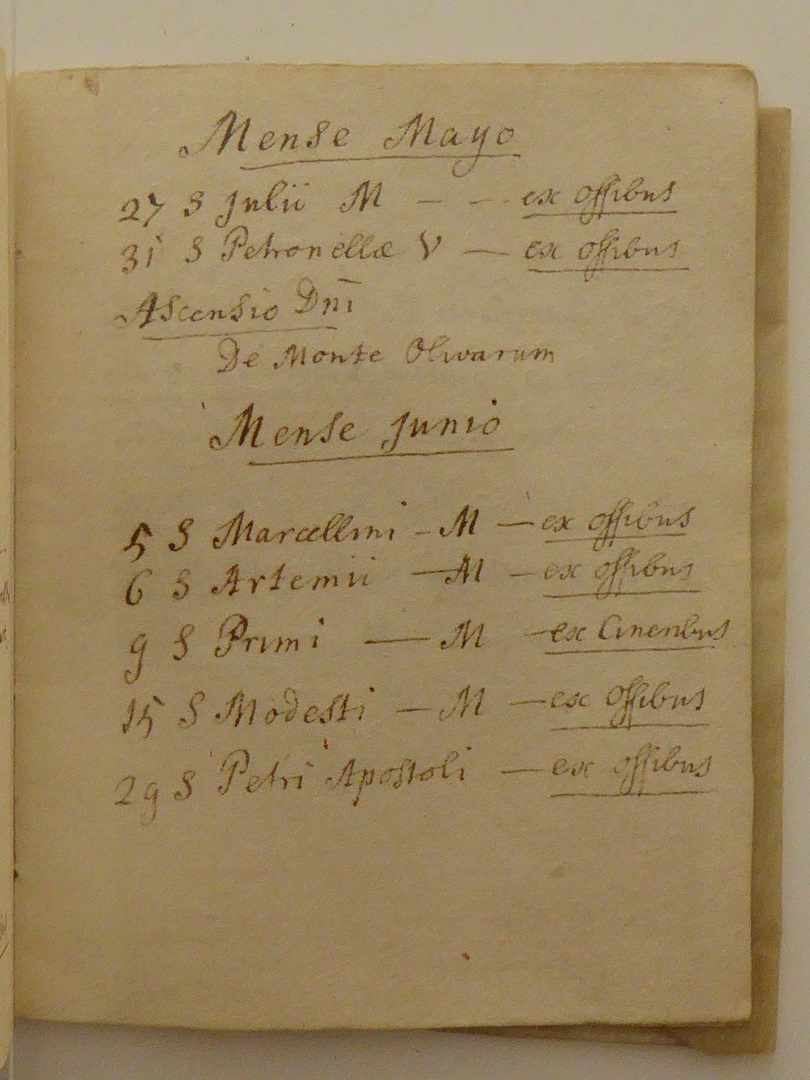 Mense Mayo
27 S Julii M - - ex ossibus
31 S Petronellæ V - ex ossibus
Ascensio Dñi
De Monte Olivarum
Mense Junio
5 S Marcellini - M - ex ossibus
6 S Artemii - M - ex ossibus
9 S Primi - M - ex Cineribus
15 S Modesti - M - ex ossibus
29 S Petri Apostoli - ex ossibus